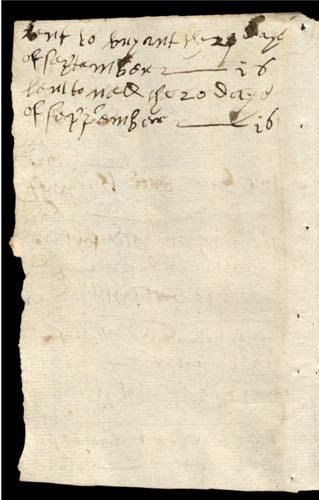 lent to bryant the 20 daye
of september 16
lent to nell the 20 daye
of september 16